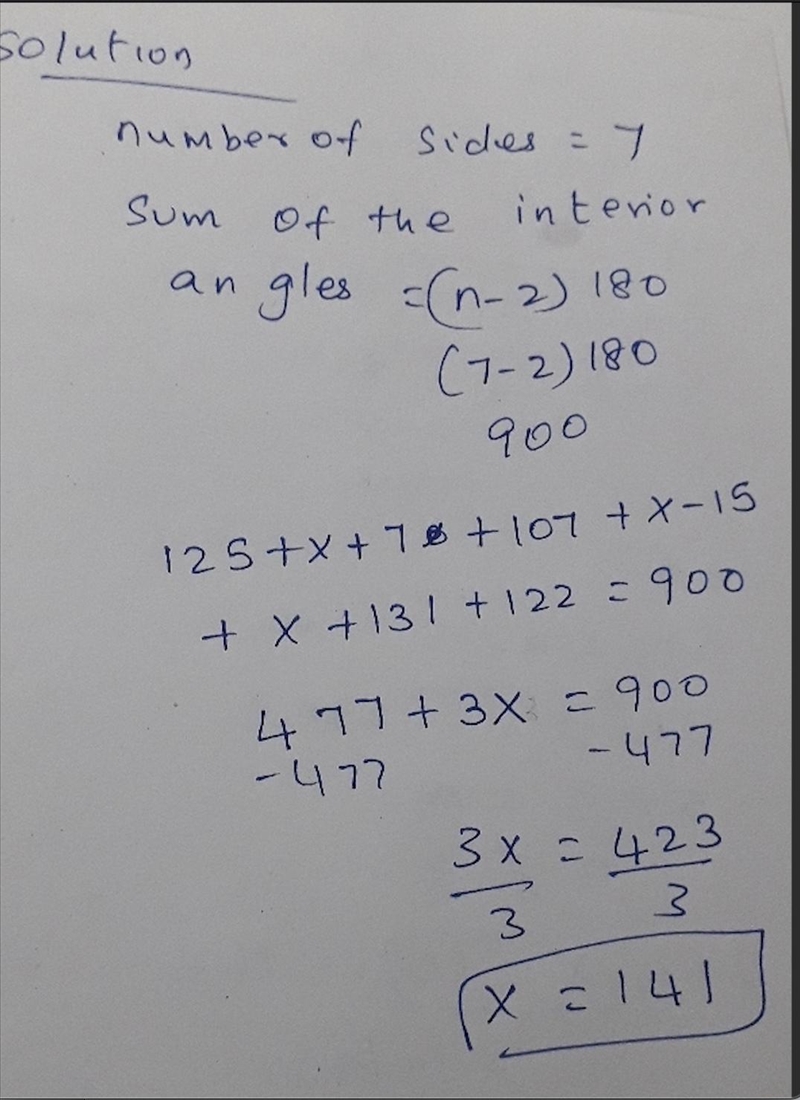 Solution
number of sides = 7
Sum of the interior
angles =(n-2) 180
(7-2) 180
900
125+x+7+107+x-15
+ x +131 +122 = 900
477+3x = 900
-477 -477
3x = 423
3 3
x = 141